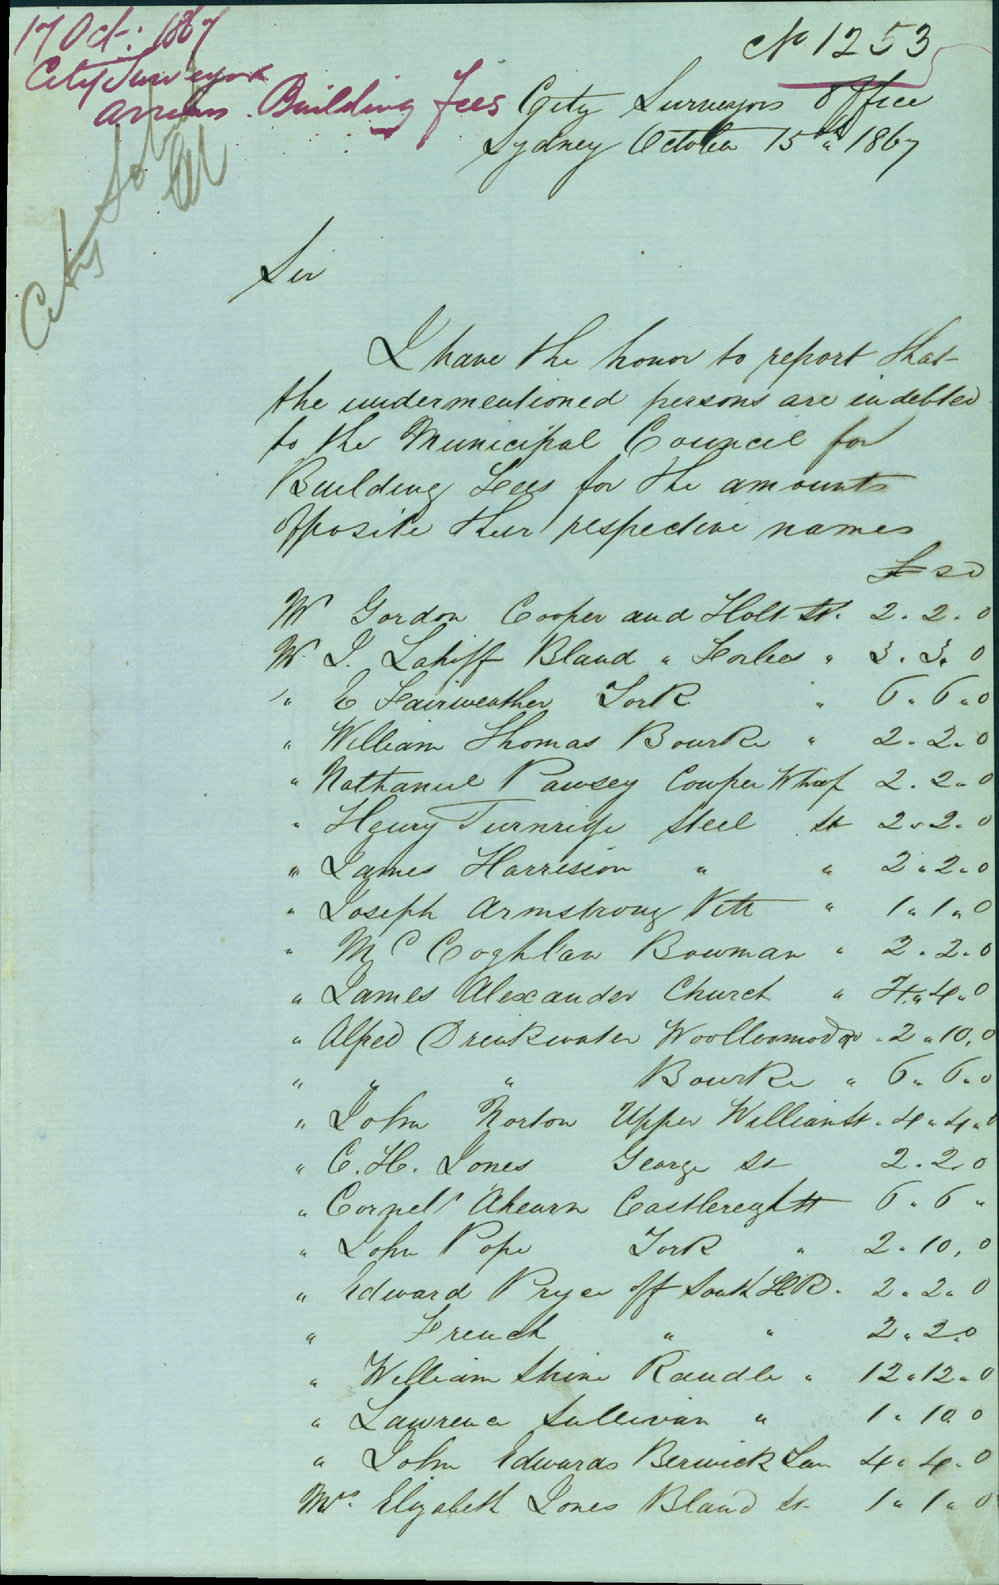 17 Oct: 1867
City Surveyor
arrears Building Fees
No 1253
City Surveyors Office
Sydney October 15th 1867
City Sol
Sir
I have the honor to report that
the undermentioned persons are indebted
to the Municipal Council for
Building Fees for the amounts
opposite their respective names
£ s d
Mr Gordon Cooper and Holt St. 2.2.0
Mr. J. Lahiff Bland " Forbes " 3.3.0
" E Fairweather York " 6.6.0
" William Thomas Bourke " 2.2.0
" Nathaniel Pawsey Cowper Wharf 2.2.0
" Henry Turnridge Steel St 2.2.0
" James Harrision " " 2.2.0
" Joseph Armstrong Pitt " 1.1.0
" McCoghlan Bowman " 2.2.0
" James Alexander Church " 4.4.0
" Alfred Drinkwater Woolloomooloo 2.10.0
" " " Bourke " 6.6.0
" John Norton Upper William St. 4.4.0
" C. H. Jones George St 2.2.0
" Cornels Ahearn Castlereagh St 6.6 "
" John Pope York " 2.10.0
" Edward Pryce off South H R. 2.2.0
" French " " 2.2.0
" William Shine Randle " 12.12.0
" Lawrence Sullivan " 1.10.0
" John Edwards Berwick Lan 4.4.0
Mrs. Elizabeth Jones Bland St 1.1.0